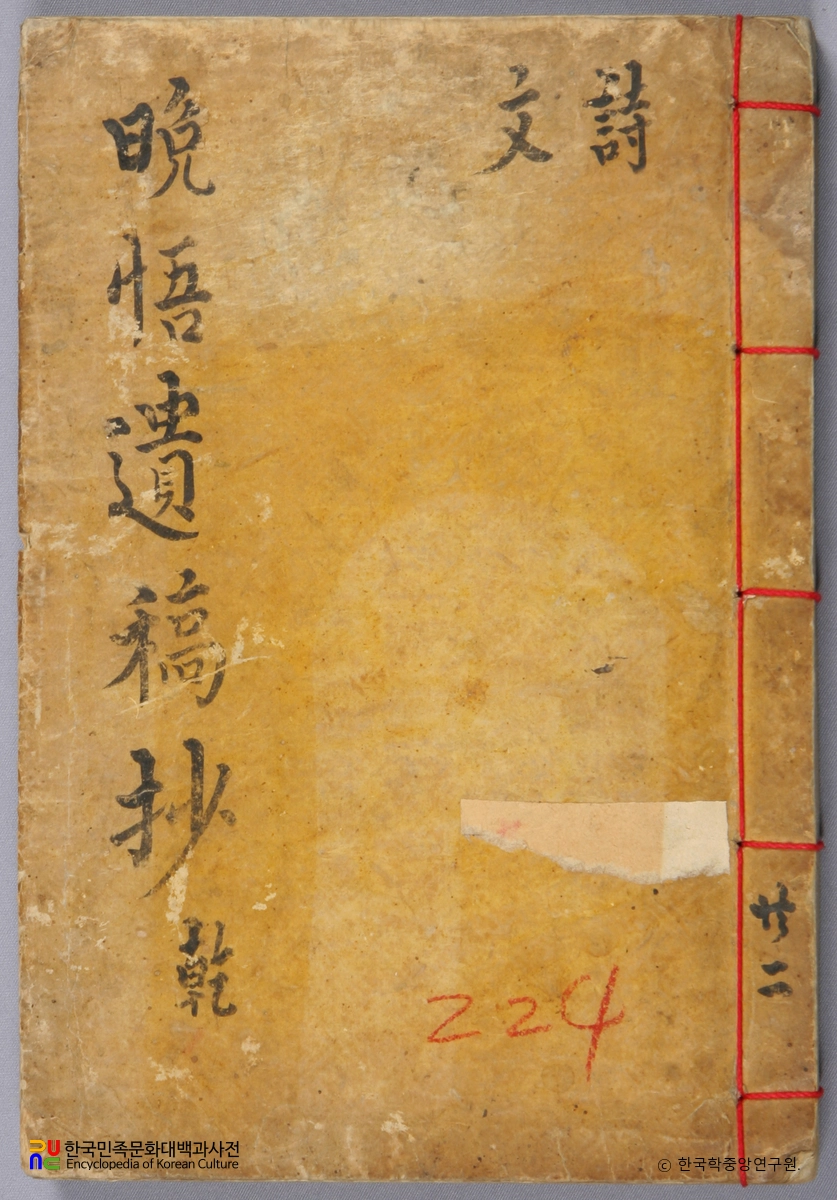 詩
文
晩悟遺稿抄 乾
共二
224
한국민족문화대백과사전
Encyclopedia of Korean Culture
© 한국학중앙연구원.